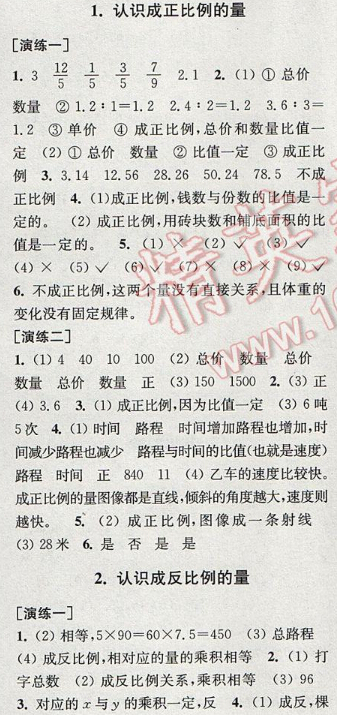 1. 认识成正比例的量
[演练一]
1. 3 12/5 1/5 3/5 7/9 2.1 2. (1) ① 总价
数量 ② 1.2∶1=1.2 2.4∶2=1.2 3.6∶3=
1.2 ③ 单价 ④ 成正比例,总价和数量比值一
定 (2) ① 总价 数量 ② 比值一定 ③ 成正比
例 3. 3.14 12.56 28.26 50.24 78.5 不成
正比例 4. (1)成正比例,钱数与份数的比值是一
定的。 (2) 成正比例,用砖块数和铺底面积的比
值是一定的。 5. (1) × (2) ✓ (3) ✓
(4) × (5) ✓ (6) ✓ (7) × (8) × (9) ✓
6. 不成正比例,这两个量没有直接关系,且体重的
变化没有固定规律。
[演练二]
1. (1) 4 40 10 100 (2) 总价 数量 总价
数量 总价 数量 正 (3) 150 1500 2. (3) 正
(4) 3.6 3. (1) 成正比例,因为比值一定 (3) 6 吨
5次 4. (1) 时间 路程 时间增加路程也增加,时
间减少路程也减少 路程与时间的比值(也就是速度)
路程 时间 正 840 11 (4) 乙车的速度比较快。
成正比例的量图像都是直线,倾斜的角度越大,速度则
越快。 5. (2) 成正比例,图像成一条射线
(3) 28 米 6. 是 否 是 是
2. 认识成反比例的量
[演练一]
1. (2) 相等,5×90=60×7.5=450 (3) 总路程
(4) 成反比例,相对应的量的乘积相等 2. (1) 打
字总数 (2) 成反比例关系,乘积相等 (3) 96
3. 对应的 x 与 y 的乘积一定,反 4. (1) 成反,棵